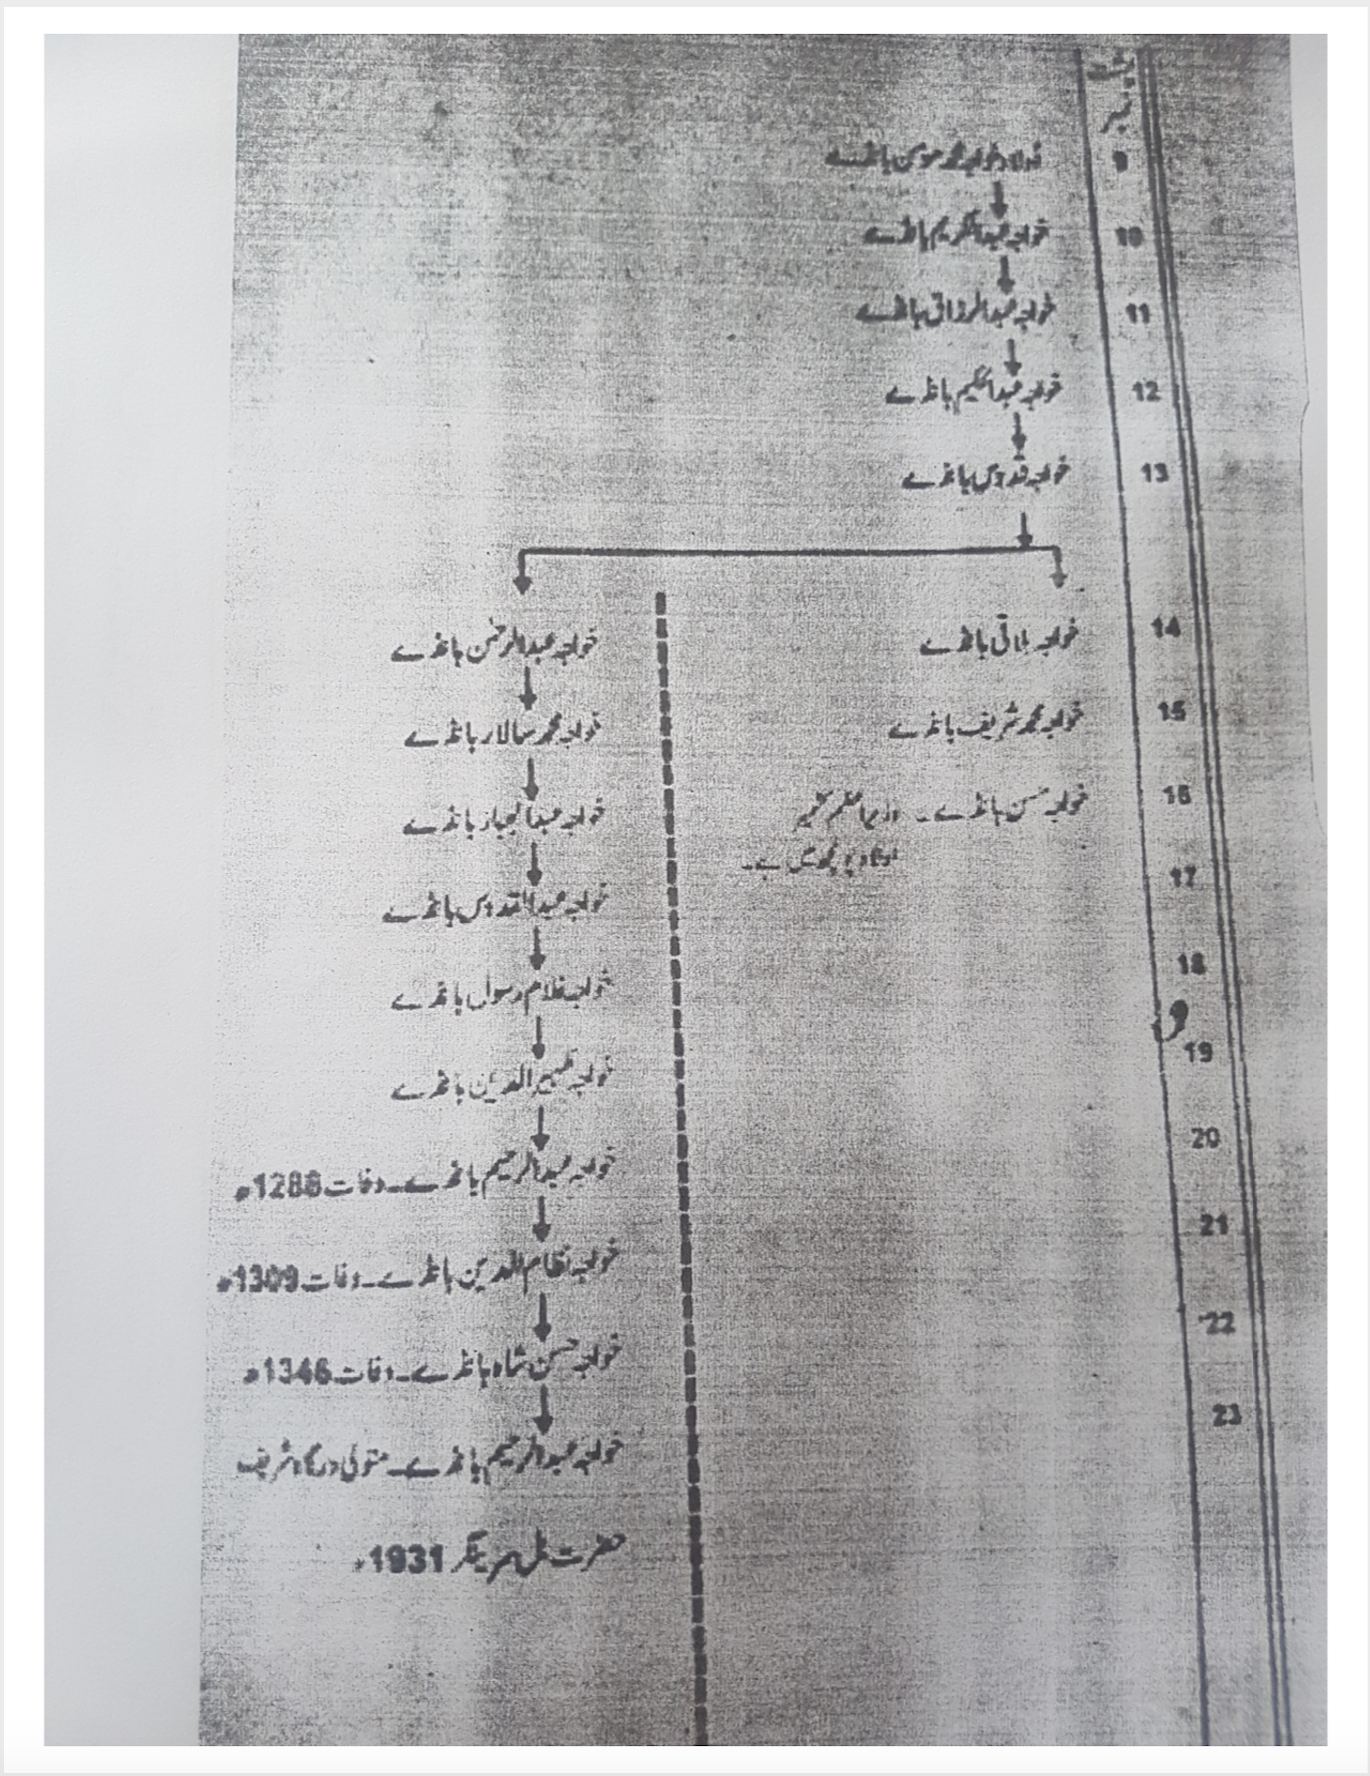 پشت
نمبر
9 اولاد خواجہ محمد مومن بانڈے
10 خواجہ عبدالکریم بانڈے
11 خواجہ عبدالرزاق بانڈے
12 خواجہ عبدالحکیم بانڈے
13 خواجہ قدوس بانڈے
14 خواجہ بلاقی بانڈے
خواجہ عبدالرحمٰن بانڈے
15 خواجہ محمد شریف بانڈے
خواجہ محمد سالار بانڈے
16 خواجہ حسن بانڈے۔ وزیراعظم کشمیر
اولاد پونچھ میں ہے۔
خواجہ عبدالجبار بانڈے
17
خواجہ عبدالقدوس بانڈے
18
خواجہ غلام رسول بانڈے
و
19
خواجہ ظہیرالدین بانڈے
20
خواجہ عبدالرحیم بانڈے۔ وفات 1288ھ
21
خواجہ نظام الدین بانڈے۔ وفات 1309ھ
22
خواجہ حسن شاہ بانڈے۔ وفات 1346ھ
23
خواجہ عبدالرحیم بانڈے۔ متولی درگاہ شریف
حضرت بل سرینگر 1931ء